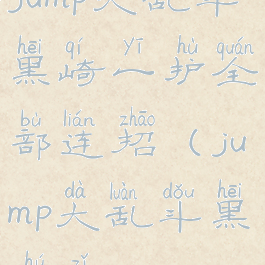 jump大乱斗
hēi qí yī hù quán
黑崎一护全
bù lián zhāo
部连招（ju
dà luàn dǒu hēi
mp大乱斗黑
hú zǐ